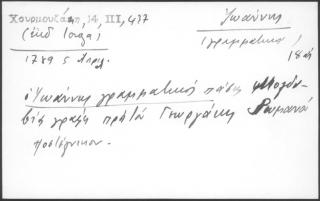 Χουρμουζάκη, 14, III, 437
(ἐκδ Ιorga)
1789 5 Απρ.
Ἰωάννης
γραμματικός,
18 αἰ
ὁ Ἰωάννης γραμματικός πάσης Μολδο-
βίας γραφει πρός τόν Γεωργάκη Ρωμανό
ποστέλνικον.